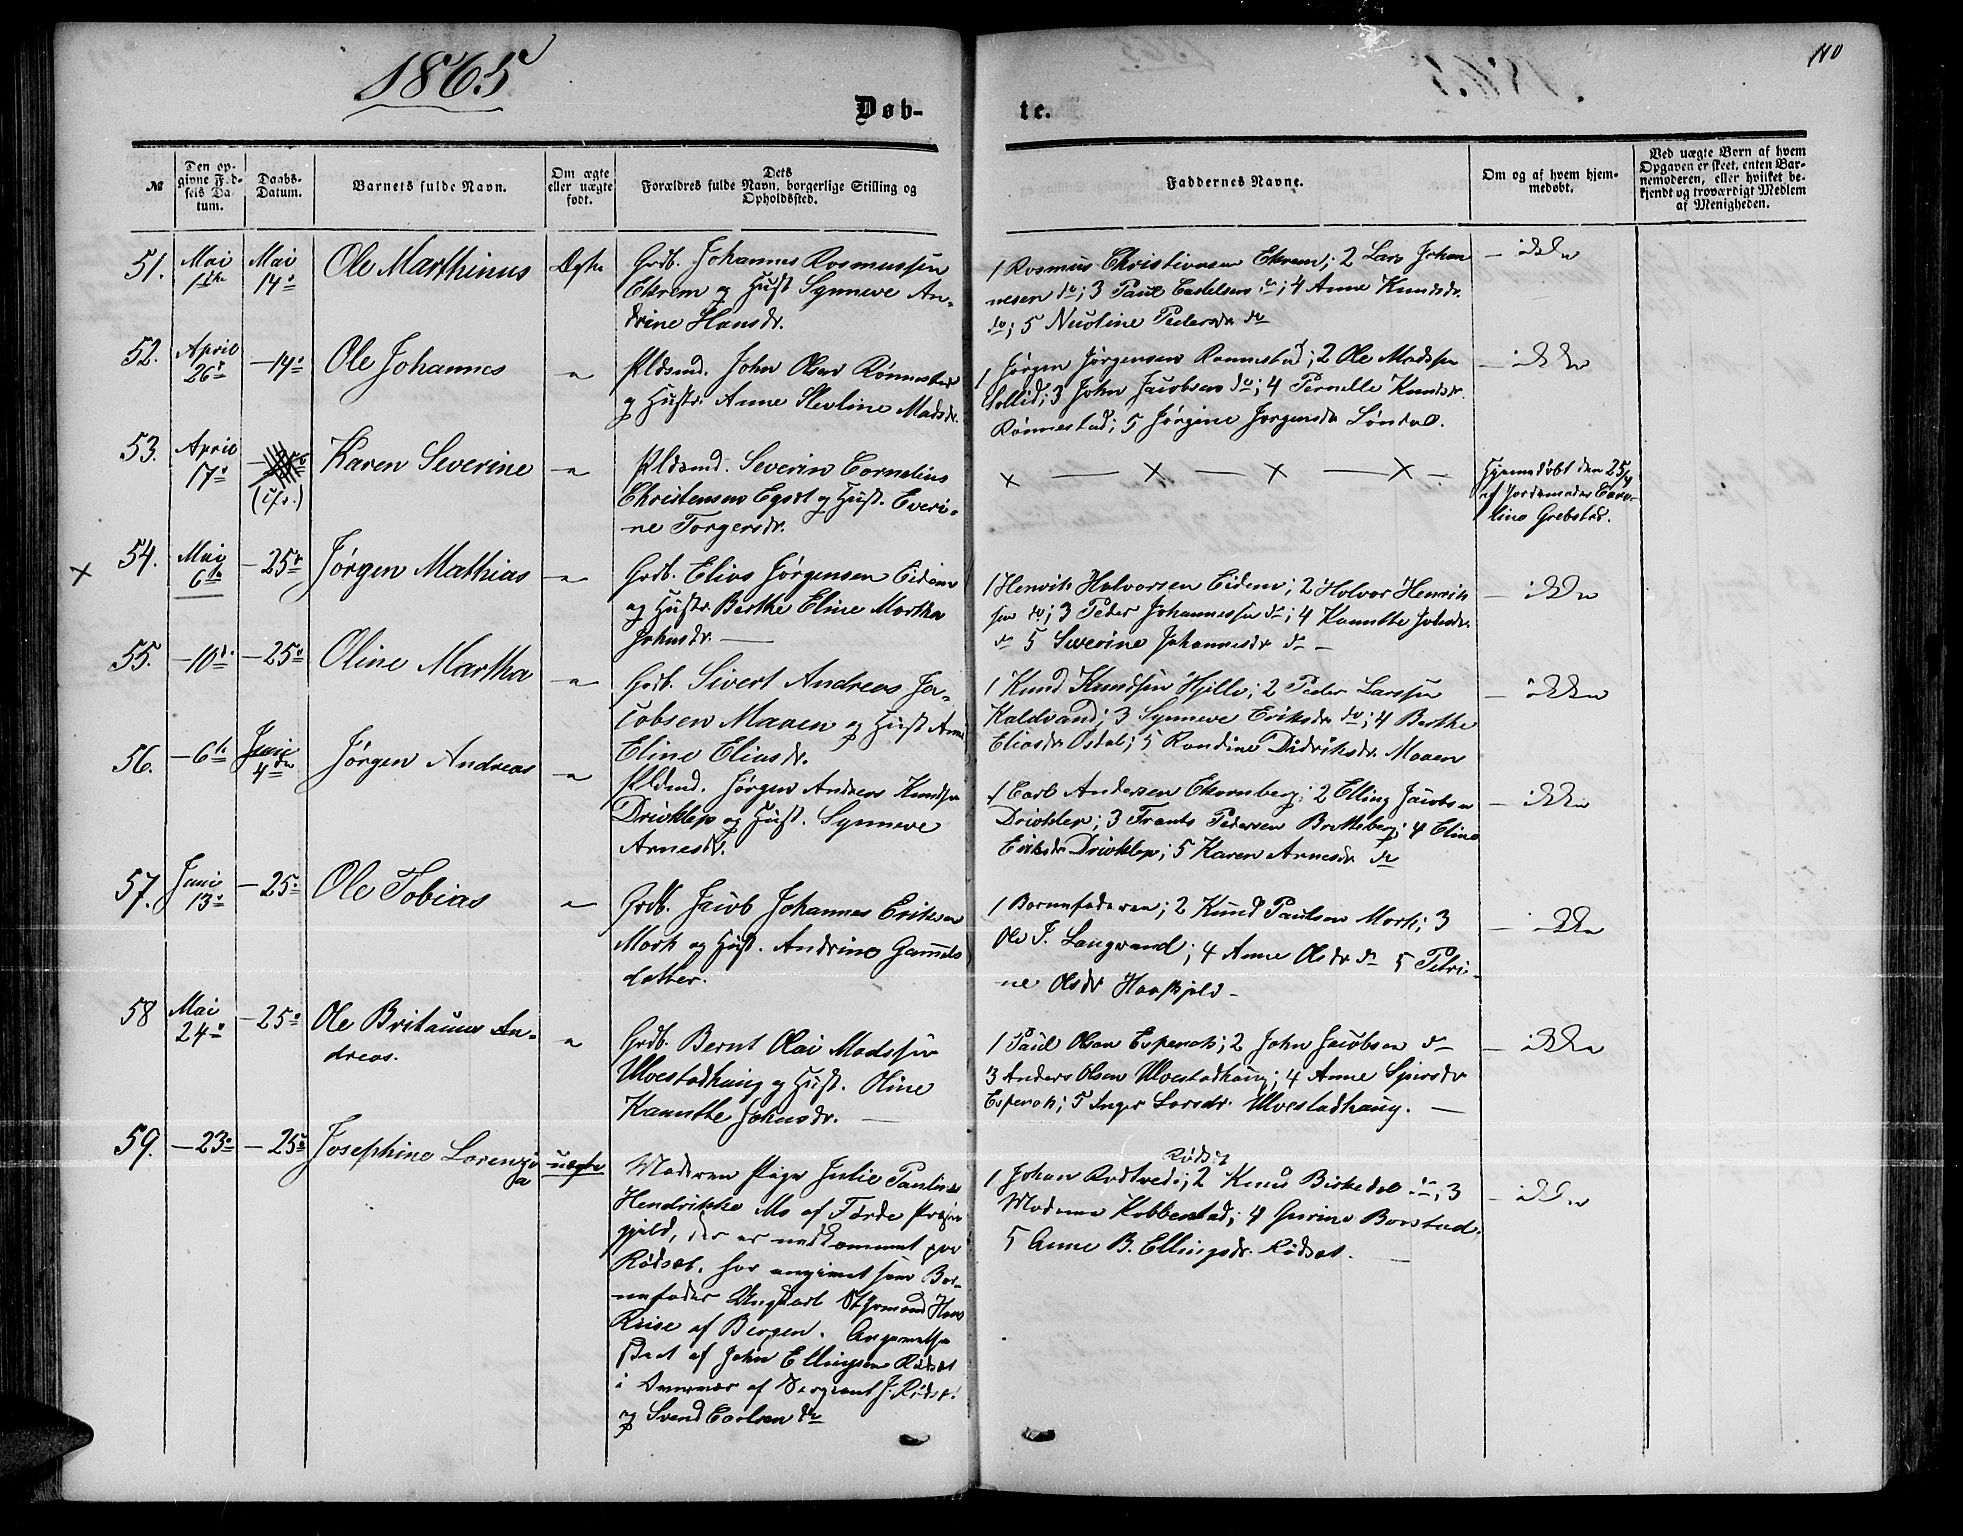 1865
110
Døb-
te.
№
Den op-
givne Fød-
sels Da-
tum.
Daabs-
Datum.
Barnets fulde Navn.
Om ægte
eller uægte
født.
Dets
Forældres fulde Navn, borgerlige Stilling og
Opholdssted.
Faddernes Navne.
Om og af hvem hjem-
medøbt.
Ved uægte Børn af hvem
Opgaven er skeet, enten Bar-
nemoderen, eller hvilket be-
kjendt og troværdigt Medlem
af Menigheden.
51.
Mai
1ste
Mai
14de
Ole Marthinus
Ægte
Grdb. Johannes Rasmussen
Ekrem og Hust. Synneve An-
drine Hansdr.
1 Rasmus Christiansen Ekrem; 2 Lars Johan
nesen do; 3 Paul Estelsen do; 4 Anne Knudsdr.
do; 5 Nicoline Pedersdr do
ikke
52.
April
26de
- 14de
Ole Johannes
"
Pldsmd. John Olsen Rønnestad
og Hustr. Anne Stevline Madsdr.
1 Jørgen Jørgensen Rønnestad; 2 Ole Madssen
Sollid; 3 John Jacobsen do; 4 Pernelle Knudsdr.
Rønnestad; 5 Jørgine Jørgensdr Løndal.
ikke
53.
April
17de
Karen Severine
"
Pldsmd. Severin Cornelius
Christensen Egset og Hust. Everi-
ne Torgersdr.
× — × — × — × —
Hjemmedøbt den 25/4
af Jordemoder Caro-
line Grebstad.
×
54.
Mai
6te
- 25de
Jørgen Mathias
"
Grdb. Elias Jørgensen Eidem
og Hustr. Berthe Eline Martha
Johnsdr. —
1 Henrik Halvorsen Eidem; 2 Halvor Henrik
sen do; 3 Peder Johannessen do; 4 Kanutte Johsdr.
do 5 Severine Johannesdr do -
ikke
55.
- 10de
- 25de
Oline Martha
"
Grdb. Sivert Andreas Ja-
cobsen Maaen og Hust Anne
Eline Eliasdr.
1 Knud Knudsen Hjelle; 2 Peder Larssen
Kaldvand; 3 Synneve Eriksdr do; 4 Berthe
Eliasdr Osdal; 5 Randine Didriksdr. Maaen
ikke
56.
- 6te
Juni
4de
Jørgen Andreas
"
Pldsmd. Jørgen Andreas Knudsen
Drivklep og Hust. Synneve
Arnesdr.
1 Carl Andersen Ekornberg; 2 Elling Jacobsen
Drivklep; 3 Frants Pedersen Bratteberg; 4 Eline
Eriksdr Drivklep; 5 Karen Arnesdr do
ikke
57.
Juni
13de
- 25de
Ole Tobias
"
Grdb. Jacob Johannes Eriksen
Mork og Hust. Andrine Gamels
datter.
1 Barnefaderen; 2 Knud Paulsen Mork; 3
Ole J. Langvand; 4 Anne Olsdr do 5 Petri-
ne Olsdr Haaskjold -
ikke
58
Mai
24de
- 25de
Ole Britanus An-
dreas.
"
Grdb. Bernt Olai Madssen
Ulvestadhaug og Hust. Oline
Kanutte Johnsdr. —
1 Paul Olsen Espenak; 2 John Jacobsen do
3 Anders Olsen Ulvestadhaug; 4 Anne Sjursdr
Espenak; 5 Inger Larsdr. Ulvestadhaug. —
ikke
59.
- 23de
- 25de
Josephine Lorenze
uægte
Moderen Pige Julie Pauline
Hendrikke Mo af Førde Præste
gjeld, der er nedkommet paa
Rødsæt, har angivet som Bar-
nefader Ungkarl Hans
Riise af Bergen. Angivelsen
skeet af John Ellingsen Rødset
i Nærvær af Sergeant J. Rødset
og Svend Carlsen do
Rødset
1 Johan Rødtvedt; 2 Knud Birkedal do; 3
Madame Kobbestad; 4 Gurine Barstad
5 Anne B. Ellingsdr. Rødset. —
ikke